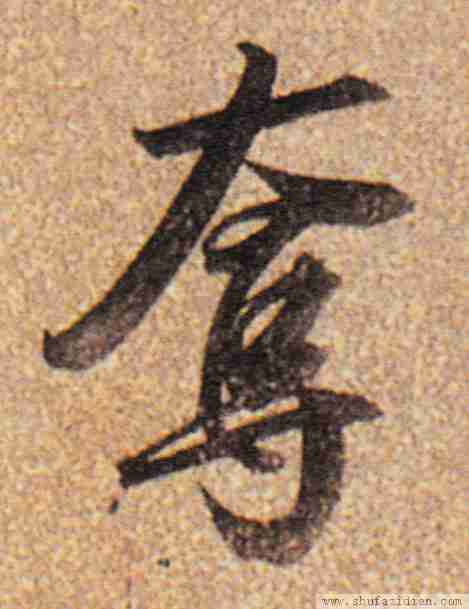 奪
www.shufazidian.com